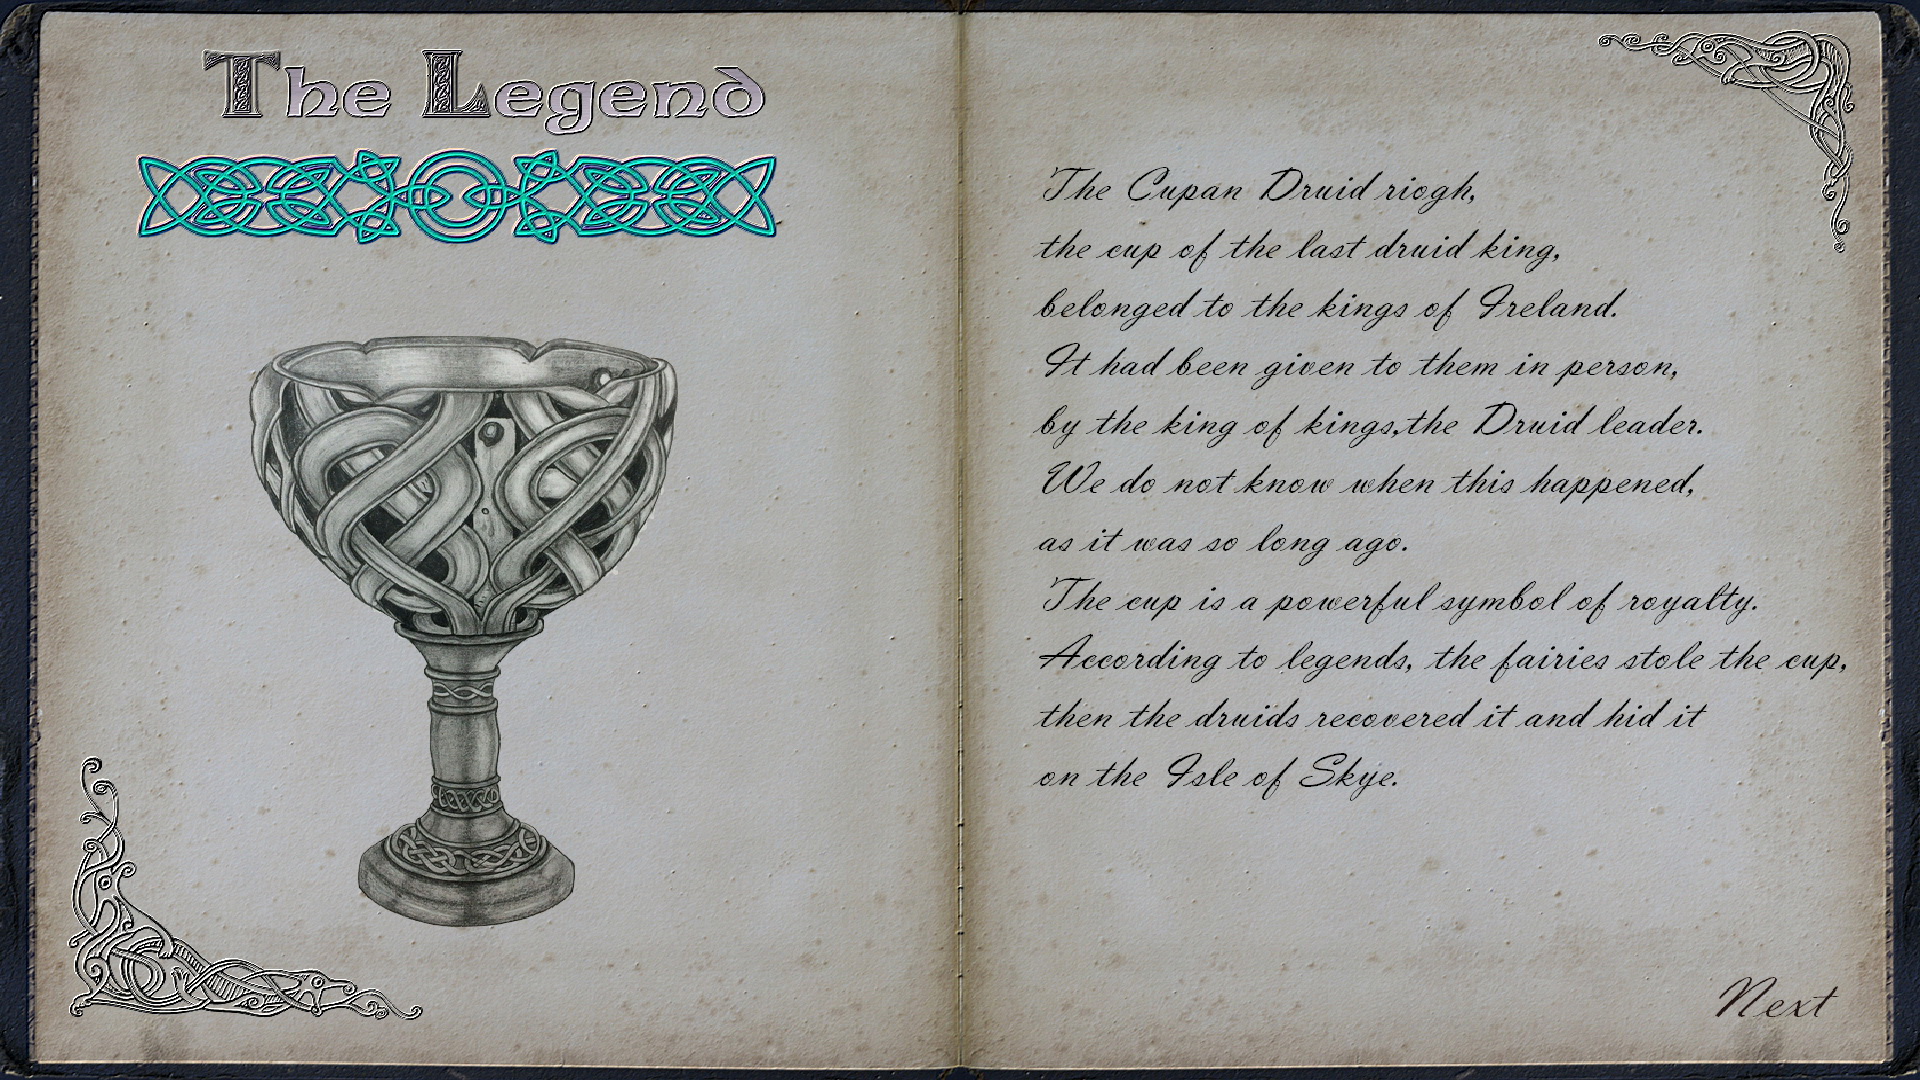 The Legend
The Cupan Druid riogh,
the cup of the last druid king,
belonged to the kings of Ireland.
It had been given to them in person,
by the king of kings,the Druid leader.
We do not know when this happened,
as it was so long ago.
The cup is a powerful symbol of royalty.
According to legends, the fairies stole the cup,
then the druids recovered it and hid it
on the Isle of Skye.
Next